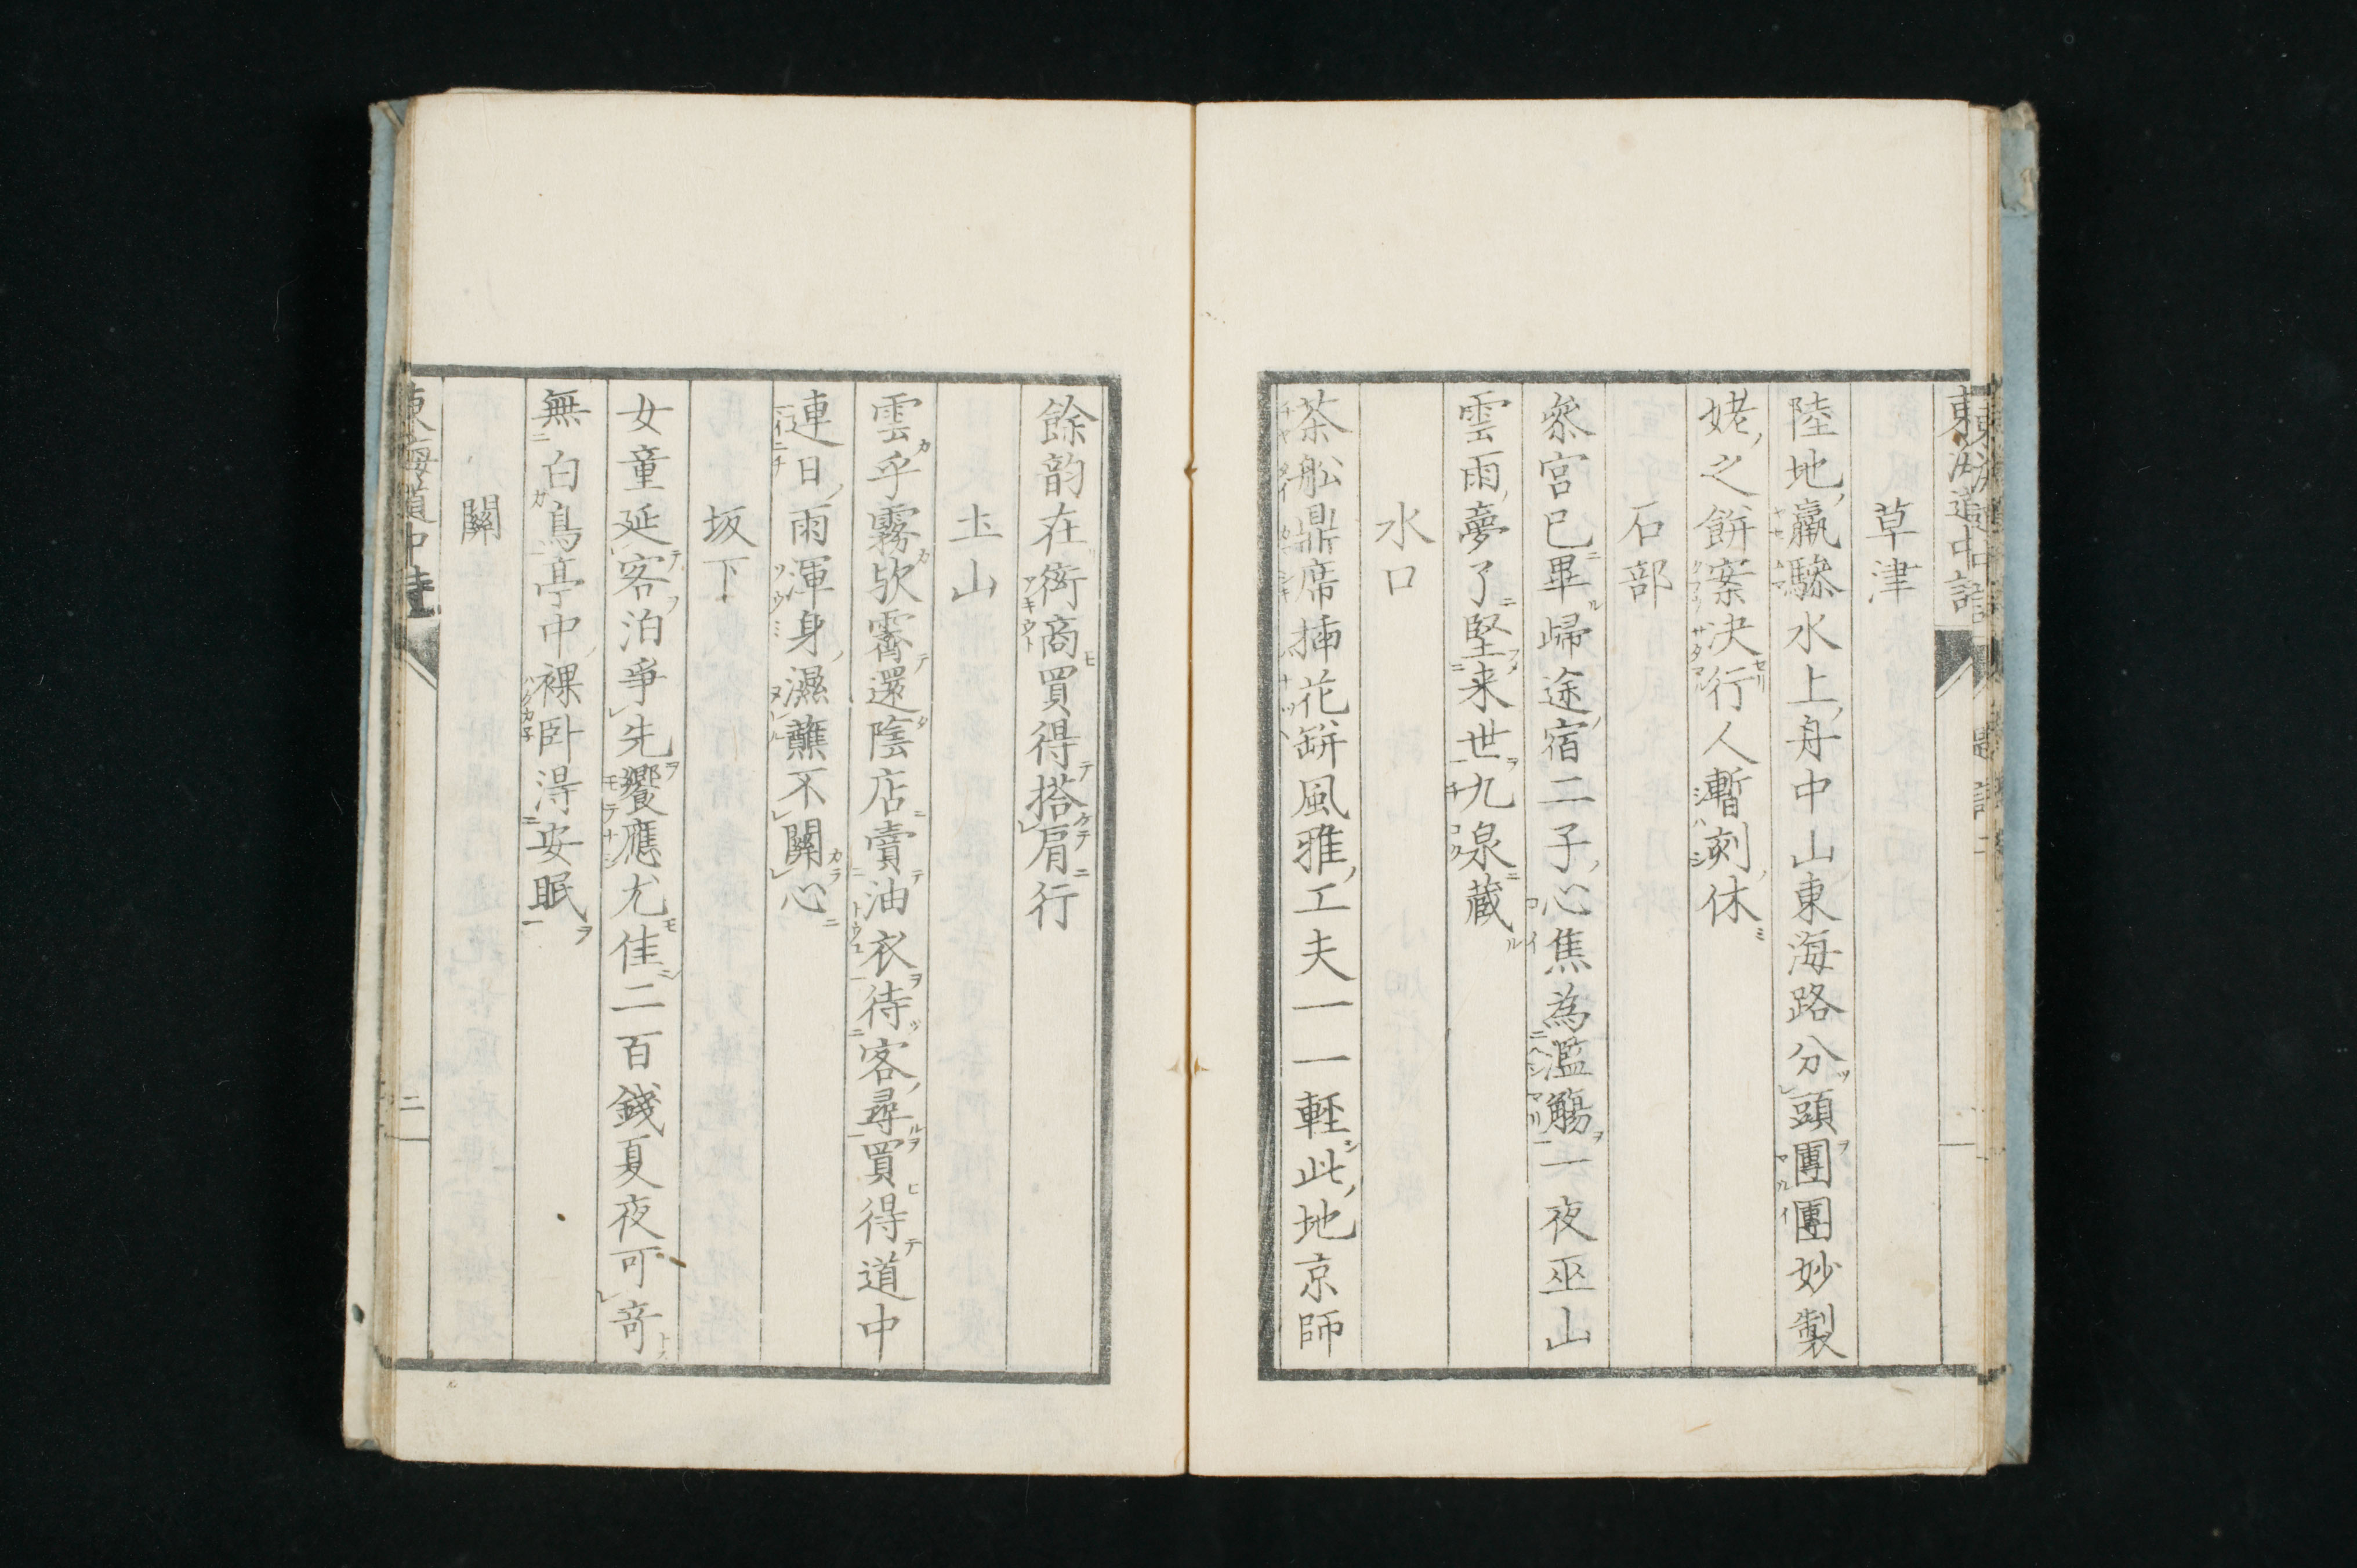 草津
陸地羸驂水上舟中山東海路分頭團團妙製
姥之餅案決行人暫刻休
石部
叅宮已畢歸途宿二子心焦為濫觴一夜巫山
雲雨夢了堅来世九泉蔵
水口
茶船鼎席挿花缾風雅工夫一一軽此地京師
餘韵在衒商買得搭肩行
土山
雲乎霧欤霽還陰店賣油衣待客尋買得道中
連日雨渾身濕蘸不關心
坂下
女童延客泊爭先饗應尤佳二百錢夏夜可竒
無白鳥亭中裸卧得安眠
關
東海道中
二